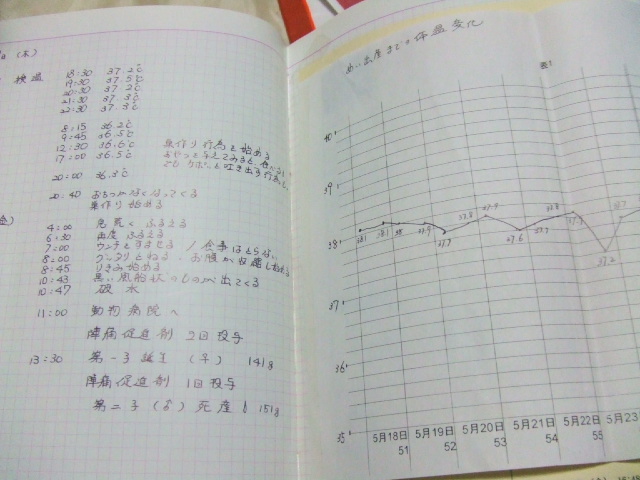 (木)
検温 18:30 37.2℃
19:30 37.5℃
20:30 37.2℃
21:30 37.3℃
22:30 37.3℃
8:15 36.2℃
9:45 36.5℃
12:30 36.6℃ 巣作り行為を始める
17:00 36.5℃
20:00 36.3℃
20:40 おちつかなくなってくる
巣作り始める
4:00 ふるえる
6:30 ふるえる
7:00 ウンチをすませる / 食事はとらない
8:00 グッタリとねる
8:45 りきみ始める
10:43 黒い風船状のものが出てくる
10:47 破水
11:00 動物病院へ
陣痛促進剤 2回投与
13:30 第一子誕生 (♀) 141g
陣痛促進剤 1回投与
第二子 (♂) 死産 151g
出産までの体温変化
40'
39'
38'
37'
36'
35'
38.1 38.1 37.9 37.7 37.8 37.9 37.6 37.7 37.8 37.2
5月18日 5月19日 5月20日 5月21日 5月22日 5月23
51 52 53 54 55